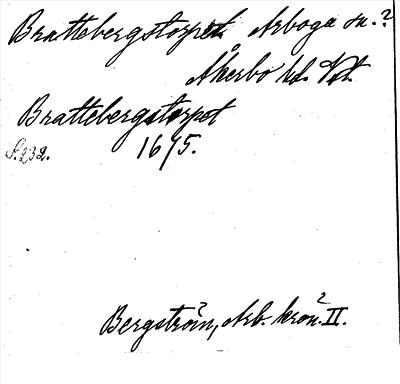 Brattebergstorpet Arboga sn.?
Åkerbo hd. Vstm.
Brattebergstorpet
S.232. 1675.
Bergström, Arb. krön. II.